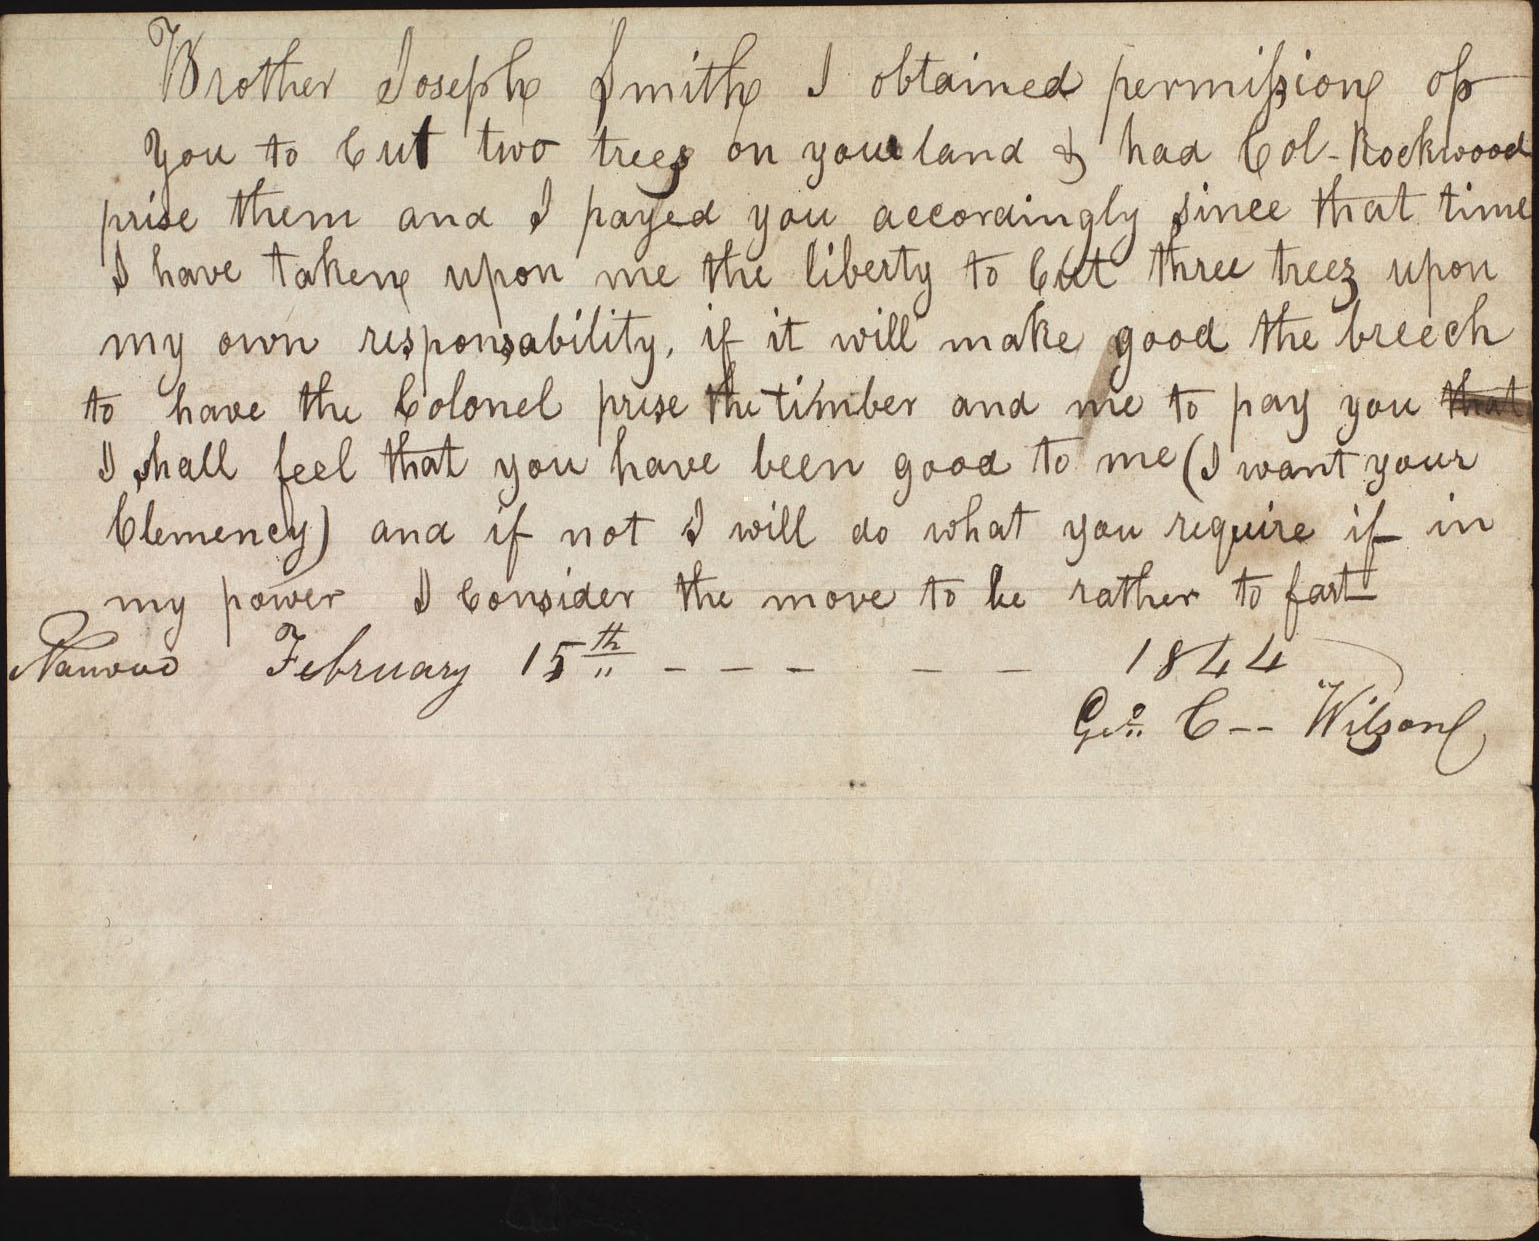 Brother Joseph Smith I obtained permission of
you to Cut two trees on your land & had Col- Rockwood
prise them and I payed you accordingly since that time
I have taken upon me the liberty to Cut three trees upon
my own responsability, if it will make good the breech
to have the Colonel prise the timber and me to pay you that
I shall feel that you have been good to me (I want your
Clemency) and if not I will do what you require if in
my power I Consider the move to be rather to fast
Nauvoo February 15th - - - - - 1844
Geo. C-- Wilson